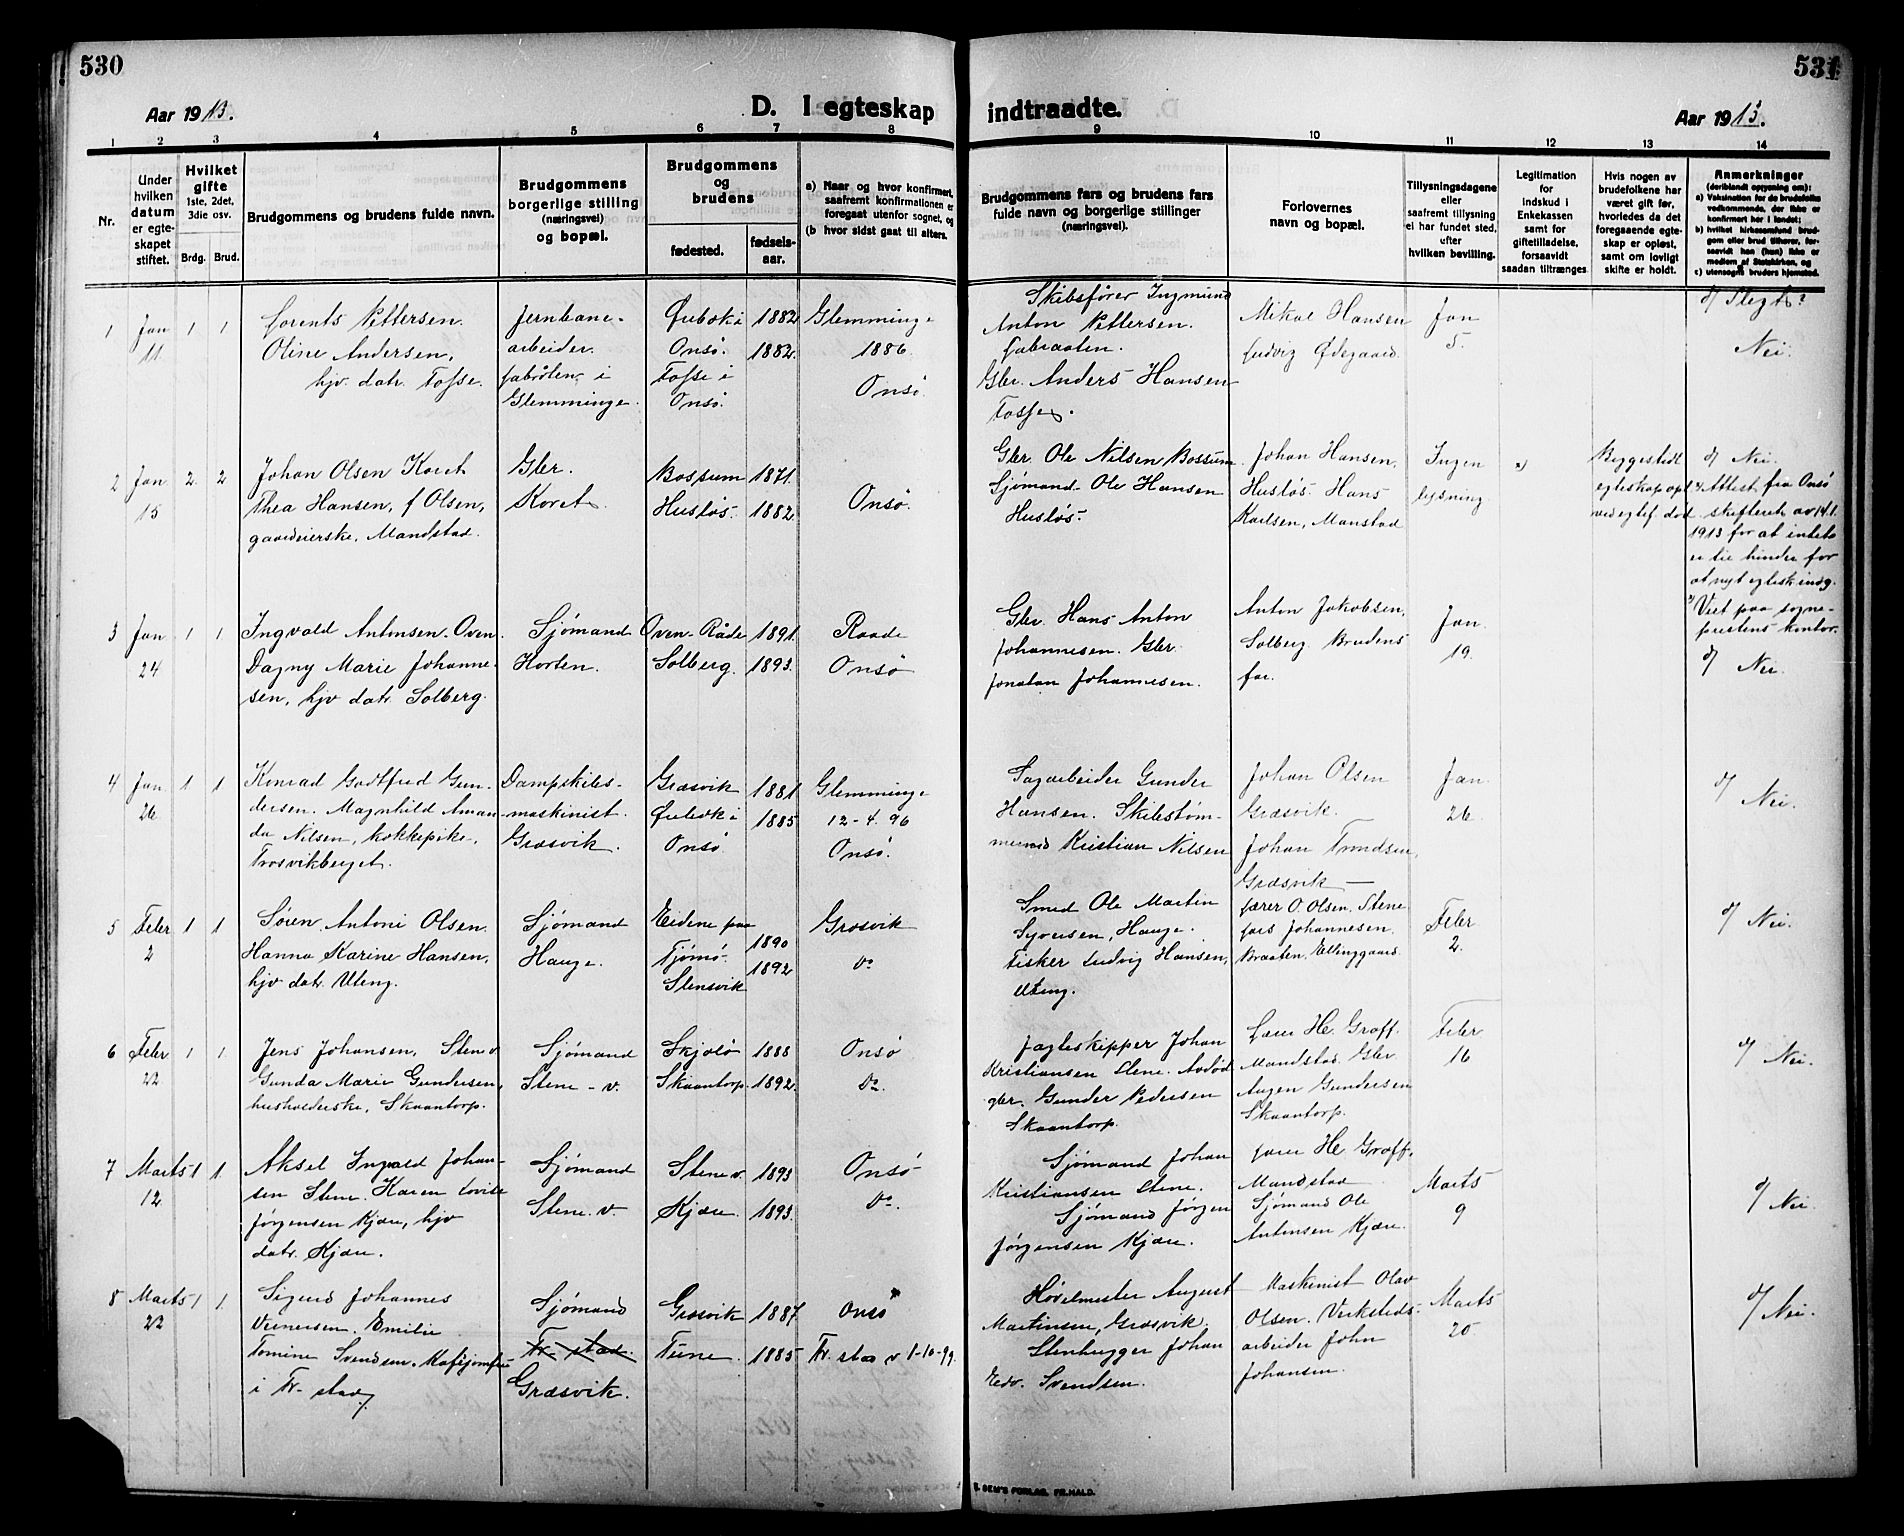 530
531
Aar 1913.
D. I egteskap indtraadte.
Aar 1913.
1 2 3 4 5 6 7 8 9 10 11 12 13 14
Nr.
Under hvilken datum er egteskapet stiftet.
Hvilket gifte 1ste, 2det, 3die osv.
Brdg. Brud.
Brudgommens og brudens fulde navn.
Brudgommens borgerlige stilling (næringsvei) og bopæl.
Brudgommens og brudens
fødested. fødselsaar.
a) Naar og hvor konfirmert, saafremt konfirmationen er foregaat utenfor sognet, og
(b hvor sidst gaat til alters.
Brudgommens fars og brudens fars fulde navn og borgerlige stillinger (næringsvei).
Forlovernes navn og bopæl.
Tillysningsdagene eller saafremt tillysning ei har fundet sted, efter hvilken bevilling.
Legitimation for indskud i Enkekassen samt for giftetilladelse, forsaavidt saadan tiltrænges
Hvis nogen av brudefolkene har været gift før, hvorledes da det foregaaende egteskap er opløst, samt om lovligt skifte er holdt.
Anmerkninger (deriblandt oplysning om):
a) Vaksination for de brudefolks vedkommende, der ikke er konfirmert her i landet;
b) hvilket kirkesamfund brudgom eller brud tilhører, forsaavidt han (hun) ikke er medlem af Statskirken, og
c) utensogns bruders hjemsted.
1 Jan 11. 1 1
Lorents Pettersen.
Oline Andersen,
hjv. datr. Tofse.
Jernbane-
arbeider.
i
Glemminge.
Onsö. 1882
Tofse i Onsö. 1882.
Glemminge
1886.
Onsö.
Skibsfører Ingmund
Anton Pettersen.
Gbr. Anders Hansen
Mikal Hansen
Ludvig Ødegaard.
Jan
5.
d/ Slegt?
Nei.
2 Jan 15 2. 2
Johan Olsen Koret
Thea Hansen, f Olsen,
gaardeierske, Mandstad.
Gbr.
Koret.
Bossum 1871.
Husløs. 1882.
Onsö.
Gbr. Ole Nilsen Bossum.
Sjømand Ole Hansen
Husløs.
Johan Hansen,
Husløs. Hans
Karlsen, Manstad
Ingen
lysning
x)
Byggestedt
egteskap opl
ved egtef. død.
d/ Nei.
x) Attest fra Onsö
skifteret av 14.1.
1913 for at intet
er til hinder for
at nyt egtesk. indg.
Viet paa sogne-
prestens kontor.
3 Jan 24 1 1
Ingvald Antonsen Oven.
Dagny Marie Johanne-
sen, hjv datr. Solberg.
Sjömand
Horten.
Oven-Råde 1891.
Solberg. 1893.
Raade
Onsö
Gbr. Hans Anton
Johannesen. Gbr.
Jonatan Johannesen.
Anton Jakobsen,
Solberg. Brudens
far.
Jan.
19.
d/ Nei.
4 Jan. 26 1 1
Konrad Godtfred Gun-
dersen. Magnhild Aman-
da Nilsen, kokkepike,
Trosvikberget.
Dampskibs-
maskinist.
Græsvik.
Græsvik 1881
Onsö 1885
Glemminge
12-4.96
Onsö.
Sagarbeider Gunder
Hansen. Skibstøm-
mermd Kristian Nilsen
Johan Olsen
Græsvik.
Johan Trondsen,
Græsvik
Jan.
26.
d/ Nei.
5 Febr 2 1 1
Søren Antoni Olsen.
Hanna Karine Hansen,
hjv datr. Uteng.
Sjömand
Hauge.
Eidene paa
Tjømø. 1890
Slensvik 1892
Græsvik
do
Smed Ole Martin
Syversen, Hauge.
Fisker Ludvig Hansen,
Uteng.
Lærer O. Olsen, Stene
Lars Johannesen.
Braaten, Ellinggaard.
Febr
2.
d/ Nei.
6 Febr 22 1 1.
Jens Johansen, Stene v.
Gunda Marie Gundersen,
husholderske, Skaantorp.
Sjömand
Stene-v.
1888
Skaantorp. 1892.
Onsö
do.
Jagteskipper Johan
Kristiansen Stene. Avdød
gbr. Gunder Pedersen
Skaantorp.
Lærer He. Graff.
Mandstad. Gbr.
Augen Gundersen
Skaantorp.
Febr
16
d/ Nei.
7 Marts 12 1 1.
Aksel Ingvald Johan-
sen Stene. Karen Lovise
Jørgensen Kjære, hjv
datr. Kjære.
Sjömand
Stene. v.
Stene v. 1893
Kjære. 1893.
Onsö
do.
Sjömand Johan
Kristiansen Stene.
Sjömand Jørgen
Jørgensen Kjære.
Lærer He Graff,
Mandstad
Sjömand Ole
Antonsen Kjære.
Marts
9
d/ Nei.
8 Marts 22 1 1.
Sigurd Johannes
Emilie
Tomine Svendsen.
i Fr. stad.
Sjömand
Fr. stad.
Græsvik.
Græsvik 1887
Tune. 1885
Onsö
Fr. stad v 1-10-99.
Høvelmester August
Martinsen, Græsvik.
Stenhugger Johan
Edv. Svendsen.
Maskinist Olav
Olsen. Verksteds-
arbeider John
Johansen.
Marts
20.
d/ Nei.
E. SEM'S FORLAG. FR.HALD.